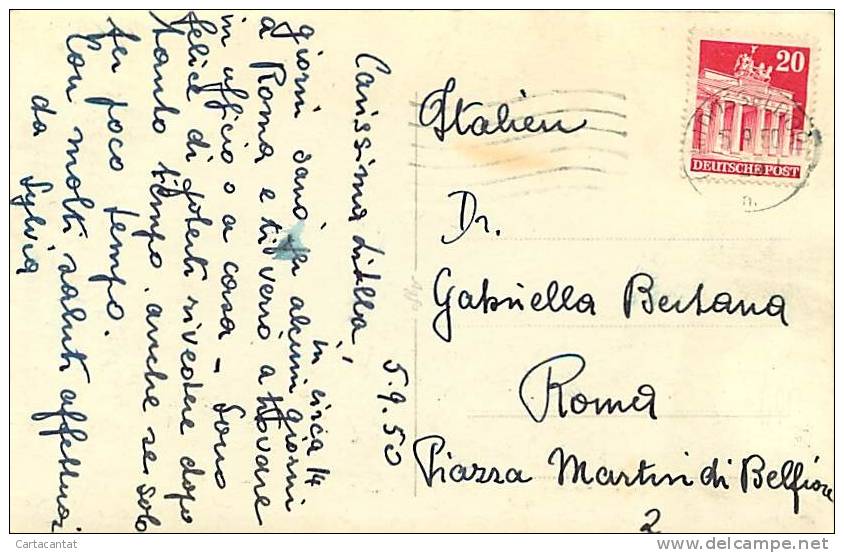 5.9.50
Carissima
in circa 14
giorni sarò per alcuni giorni
a Roma e ti verrò a trovare
in ufficio o a casa - Sono
felice di poterti rivedere dopo
tanto tempo, anche se solo
per poco tempo.
Con molti saluti affettuosi
da Sylvia
20
DEUTSCHE POST
Italien
Dr.
Gabriella Bertana
Roma
Piazza Martiri di Belfiore
2
Cartacantat
www.delcampe.net